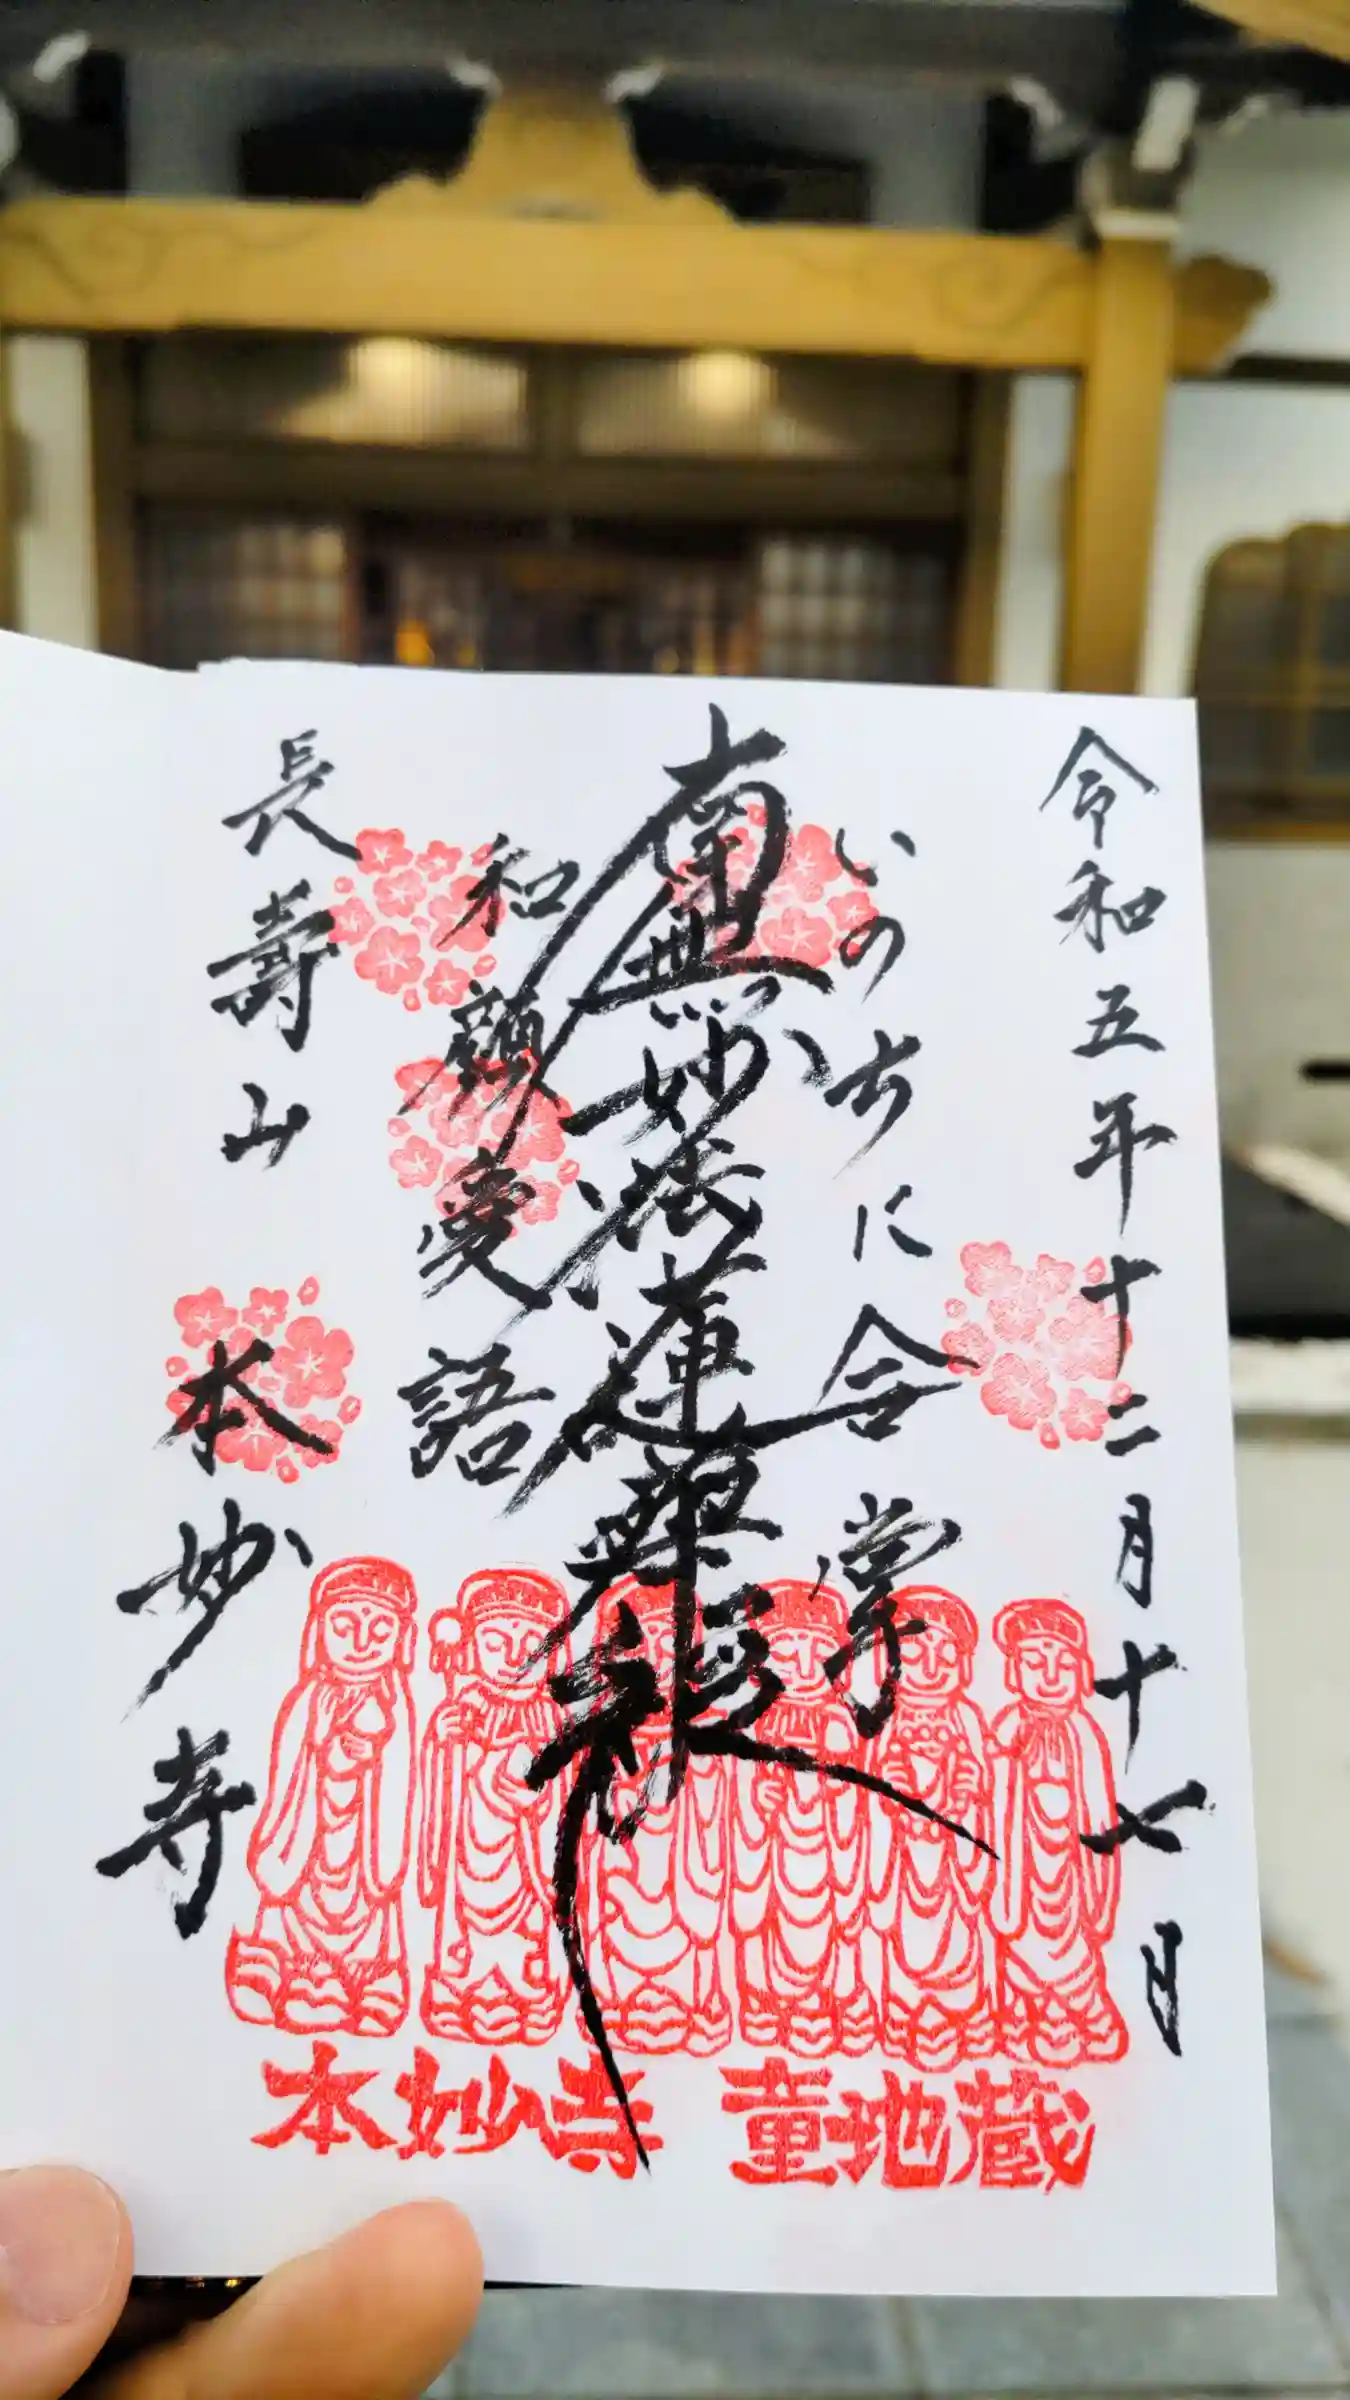 令和五年十二月十七日
いのちに合掌
南無妙法蓮華経
和顔愛語
長壽山
本妙寺
本妙寺 童地蔵